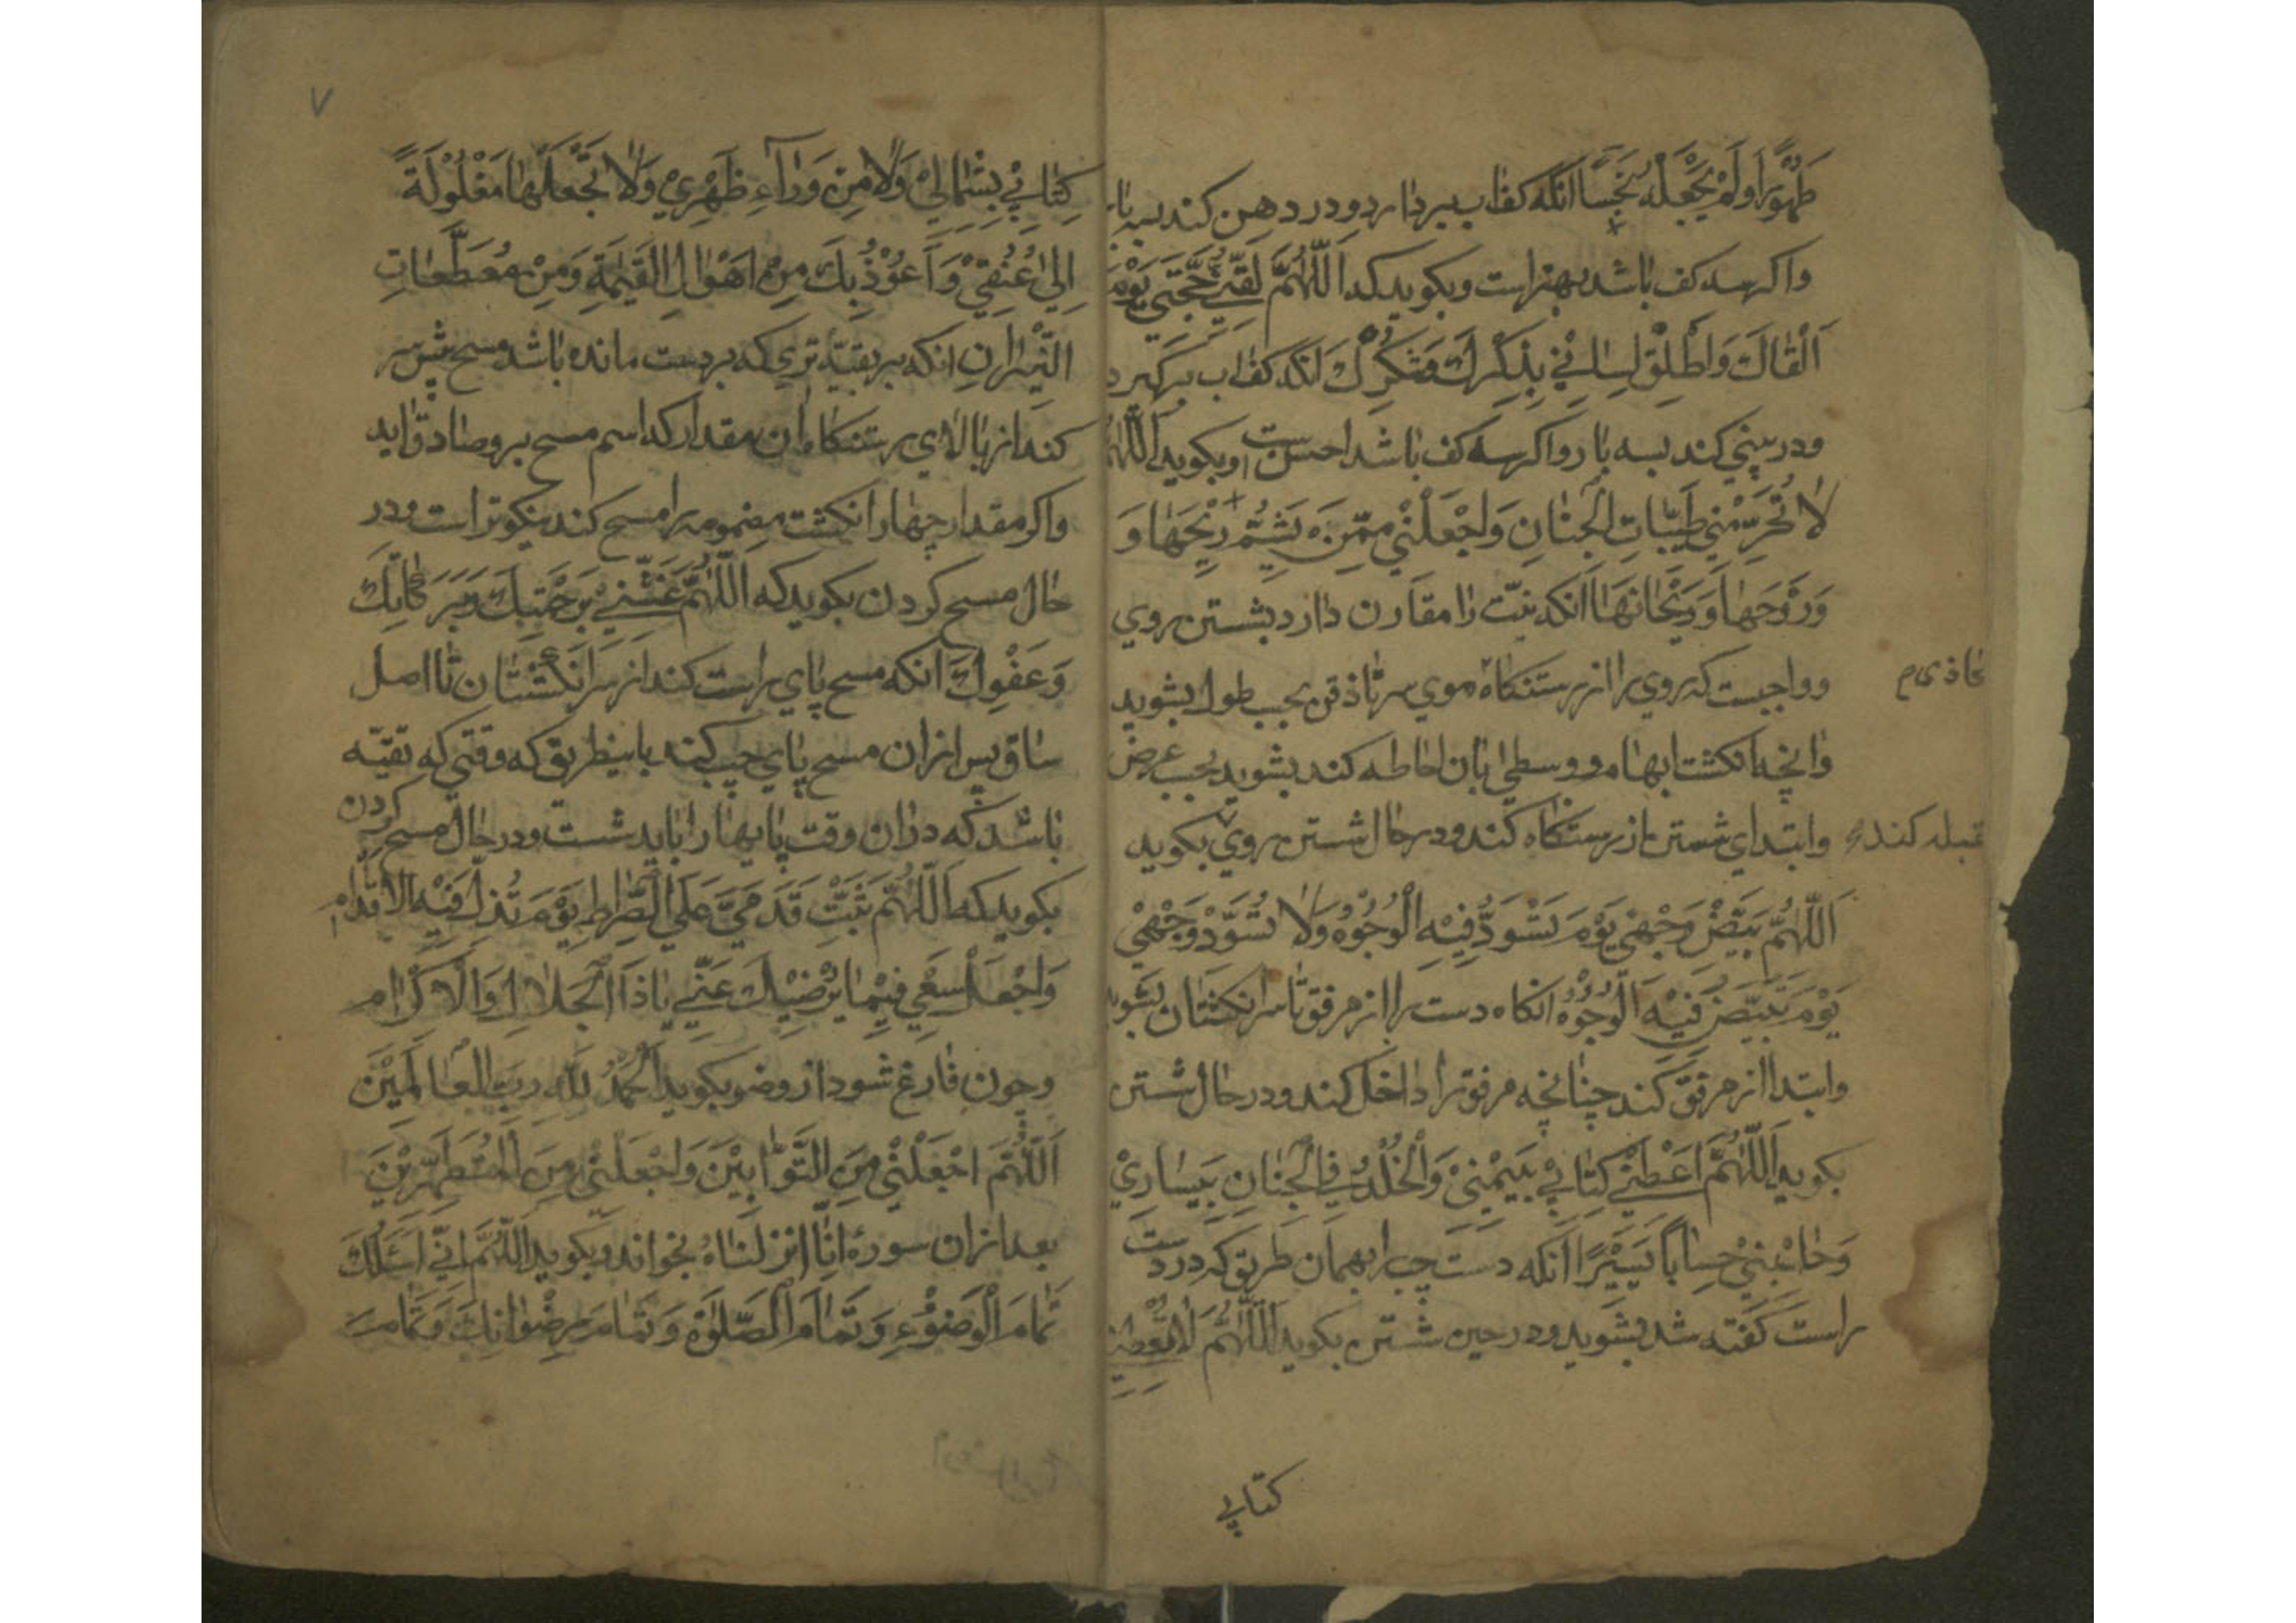 طَهُورًا وَلَمْ يَجْعَلْهُ نَجِسًا انکه کفاب بردارد و در دهن کند بسه بار
واکر سه کف باشد بهتراست و بکوید که اَللّٰهُمَّ لَقِّنِّي حُجَّتِي يَوْمَ
اَلْقَاكَ وَاَطْلِقْ لِسَانِي بِذِكْرِكَ وَشُكْرِكَ انکه کفاب برکیرد
و در بینی کند بسه بار و اکر سه کف باشد احسن است و بکوید اَللّٰهُمَّ
لَا تُحَرِّمْنِي طَيِّبَاتِ الْجِنَانِ وَاجْعَلْنِي مِمَّنْ يَشُمُّ رِيْحَهَا وَ
وَرَوْحَهَا وَرَيْحَانَهَا انکه نیّت را مقارن دارد بشستن روی
و واجبست که روی را از رستنکاه موی سر تا ذقن بحسب طول بشوید
محاذی م
وانچه انکشت ابهام و وسطی بان احاطه کند بشوید بحسب عرض
وابتدای شستن از رستنکاه کند و در حال شستن روی بکوید
قبله کند
اَللّٰهُمَّ بَيِّضْ وَجْهِي يَوْمَ تَسْوَدُّ فِيْهِ الْوُجُوْهُ وَلَا تُسَوِّدْ وَجْهِي
يَوْمَ تَبْيَضُّ فِيْهِ الْوُجُوْهُ انکاه دست را از مرفق تا سر انکشتان بشوید
وابتدا از مرفق کند چنانچه مرفق را داخل کند و در حال شستن
بکوید اَللّٰهُمَّ اَعْطِنِي كِتَابِي بِيَمِيْنِي وَالْخُلْدَ فِي الْجِنَانِ بِيَسَارِيْ
وَحَاسِبْنِيْ حِسَابًا يَسِيْرًا انکه دست چپ را بهمان طریق که در دست
راست کفته شد بشوید و در حین شستن بکوید اَللّٰهُمَّ لَا تُعْطِنِي
کتابی
٧
كِتَابِيْ بِشِمَالِيْ وَلَا مِنْ وَرَآءِ ظَهْرِيْ وَلَا تَجْعَلْهَا مَغْلُوْلَةً
اِلٰى عُنُقِيْ وَاَعُوْذُ بِكَ مِنْ اَهْوَالِ الْقِيٰمَةِ وَمِنْ مُقَطَّعَاتِ
النِّيْرَانِ انکه ببقیّه تری که بر دست مانده باشد مسح پیش سر
کند از بالای رستنکاه ان مقدار که اسم مسح برو صادق اید
واکر مقدار چهار انکشت مضمومه را مسح کند نیکوتر است و در
حال مسح کردن بکوید که اَللّٰهُمَّ غَشِّنِيْ بِرَحْمَتِكَ وَبَرَكَاتِكَ
وَعَفْوِكَ انکه مسح پای راست کند از سر انکشتان تا اصل
ساق پس از ان مسح پای چپ کند باینطریق که وقتی که تقیّه
باشد که دران وقت پایها را باید شست و در حال مسح کردن
بکوید که اَللّٰهُمَّ ثَبِّتْ قَدَمَيَّ عَلَى الصِّرَاطِ يَوْمَ تَزِلُّ فِيْهِ الْاَقْدَامُ
وَاجْعَلْ سَعْيِي فِيْمَا يُرْضِيْكَ عَنِّي يَا ذَا الْجَلَالِ وَالْاِكْرَامِ
وچون فارغ شود از وضو بکوید اَلْحَمْدُ لِلّٰهِ رَبِّ الْعَالَمِيْنَ
اَللّٰهُمَّ اجْعَلْنِي مِنَ التَّوَّابِيْنَ وَاجْعَلْنِي مِنَ الْمُتَطَهِّرِيْنَ
بعد از ان سوره اِنَّا انزلناه بخواند و بکوید اَللّٰهُمَّ اِنِّي اَسْئَلُكَ
تَمَامَ الْوُضُوْءِ وَتَمَامَ الصَّلٰوةِ وَتَمَامَ رِضْوَانِكَ وَتَمَامَ